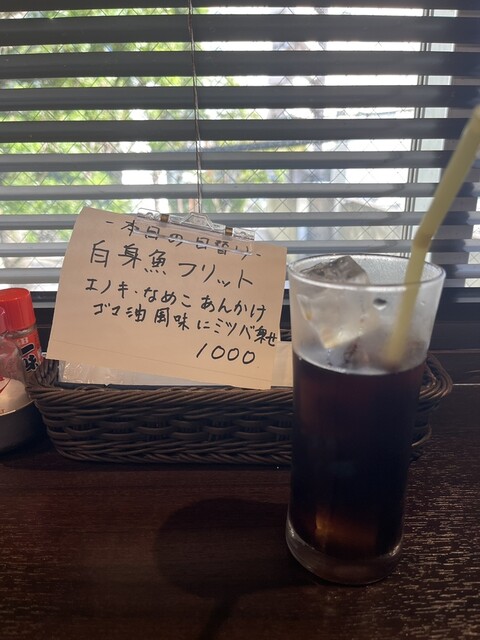 -本日の日替り-
白身魚フリット
エノキ・なめこあんかけ
ゴマ油風味にミツバ乗せ
1000